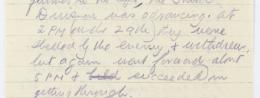 Division was advancing. at
2 PM on the 29th they were
checked by the enemy & withdrew,
but again went forward about
5 PM & succeeded in
getting through.